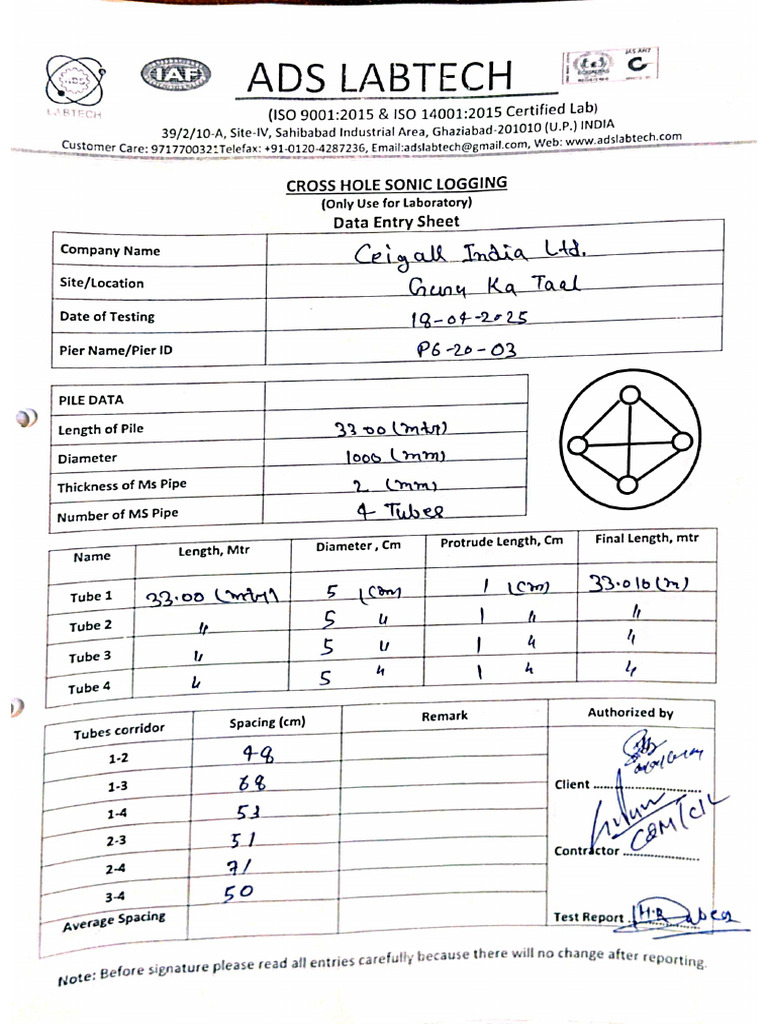 ADS
LABTECH
IAF
ADS LABTECH
(ISO 9001:2015 & ISO 14001:2015 Certified Lab)
39/2/10-A, Site-IV, Sahibabad Industrial Area, Ghaziabad-201010 (U.P.) INDIA
Customer Care: 9717700321Telefax: +91-0120-4287236, Email:adslabtech@gmail.com, Web: www.adslabtech.com
CROSS HOLE SONIC LOGGING
(Only Use for Laboratory)
Data Entry Sheet
Company Name Ceigall India Ltd.
Site/Location Guru Ka Taal
Date of Testing 18-04-2025
Pier Name/Pier ID P6-20-03
PILE DATA
Length of Pile 33.00 (mtr)
Diameter 1000 (mm)
Thickness of Ms Pipe 2 (mm)
Number of MS Pipe 4 Tubes
Name Length, Mtr Diameter , Cm Protrude Length, Cm Final Length, mtr
Tube 1 33.00 (mtr) 5 (cm) 1 (cm) 33.010 (m)
Tube 2 〃 5 〃 1 〃 〃
Tube 3 〃 5 〃 1 〃 〃
Tube 4 〃 5 〃 1 〃 〃
Tubes corridor Spacing (cm) Remark Authorized by
1-2 48
1-3 68
Client ..............................
1-4 53
2-3 51
Contractor ....................
2-4 71
3-4 50
Average Spacing
Test Report ....................
Note: Before signature please read all entries carefully because there will no change after reporting.